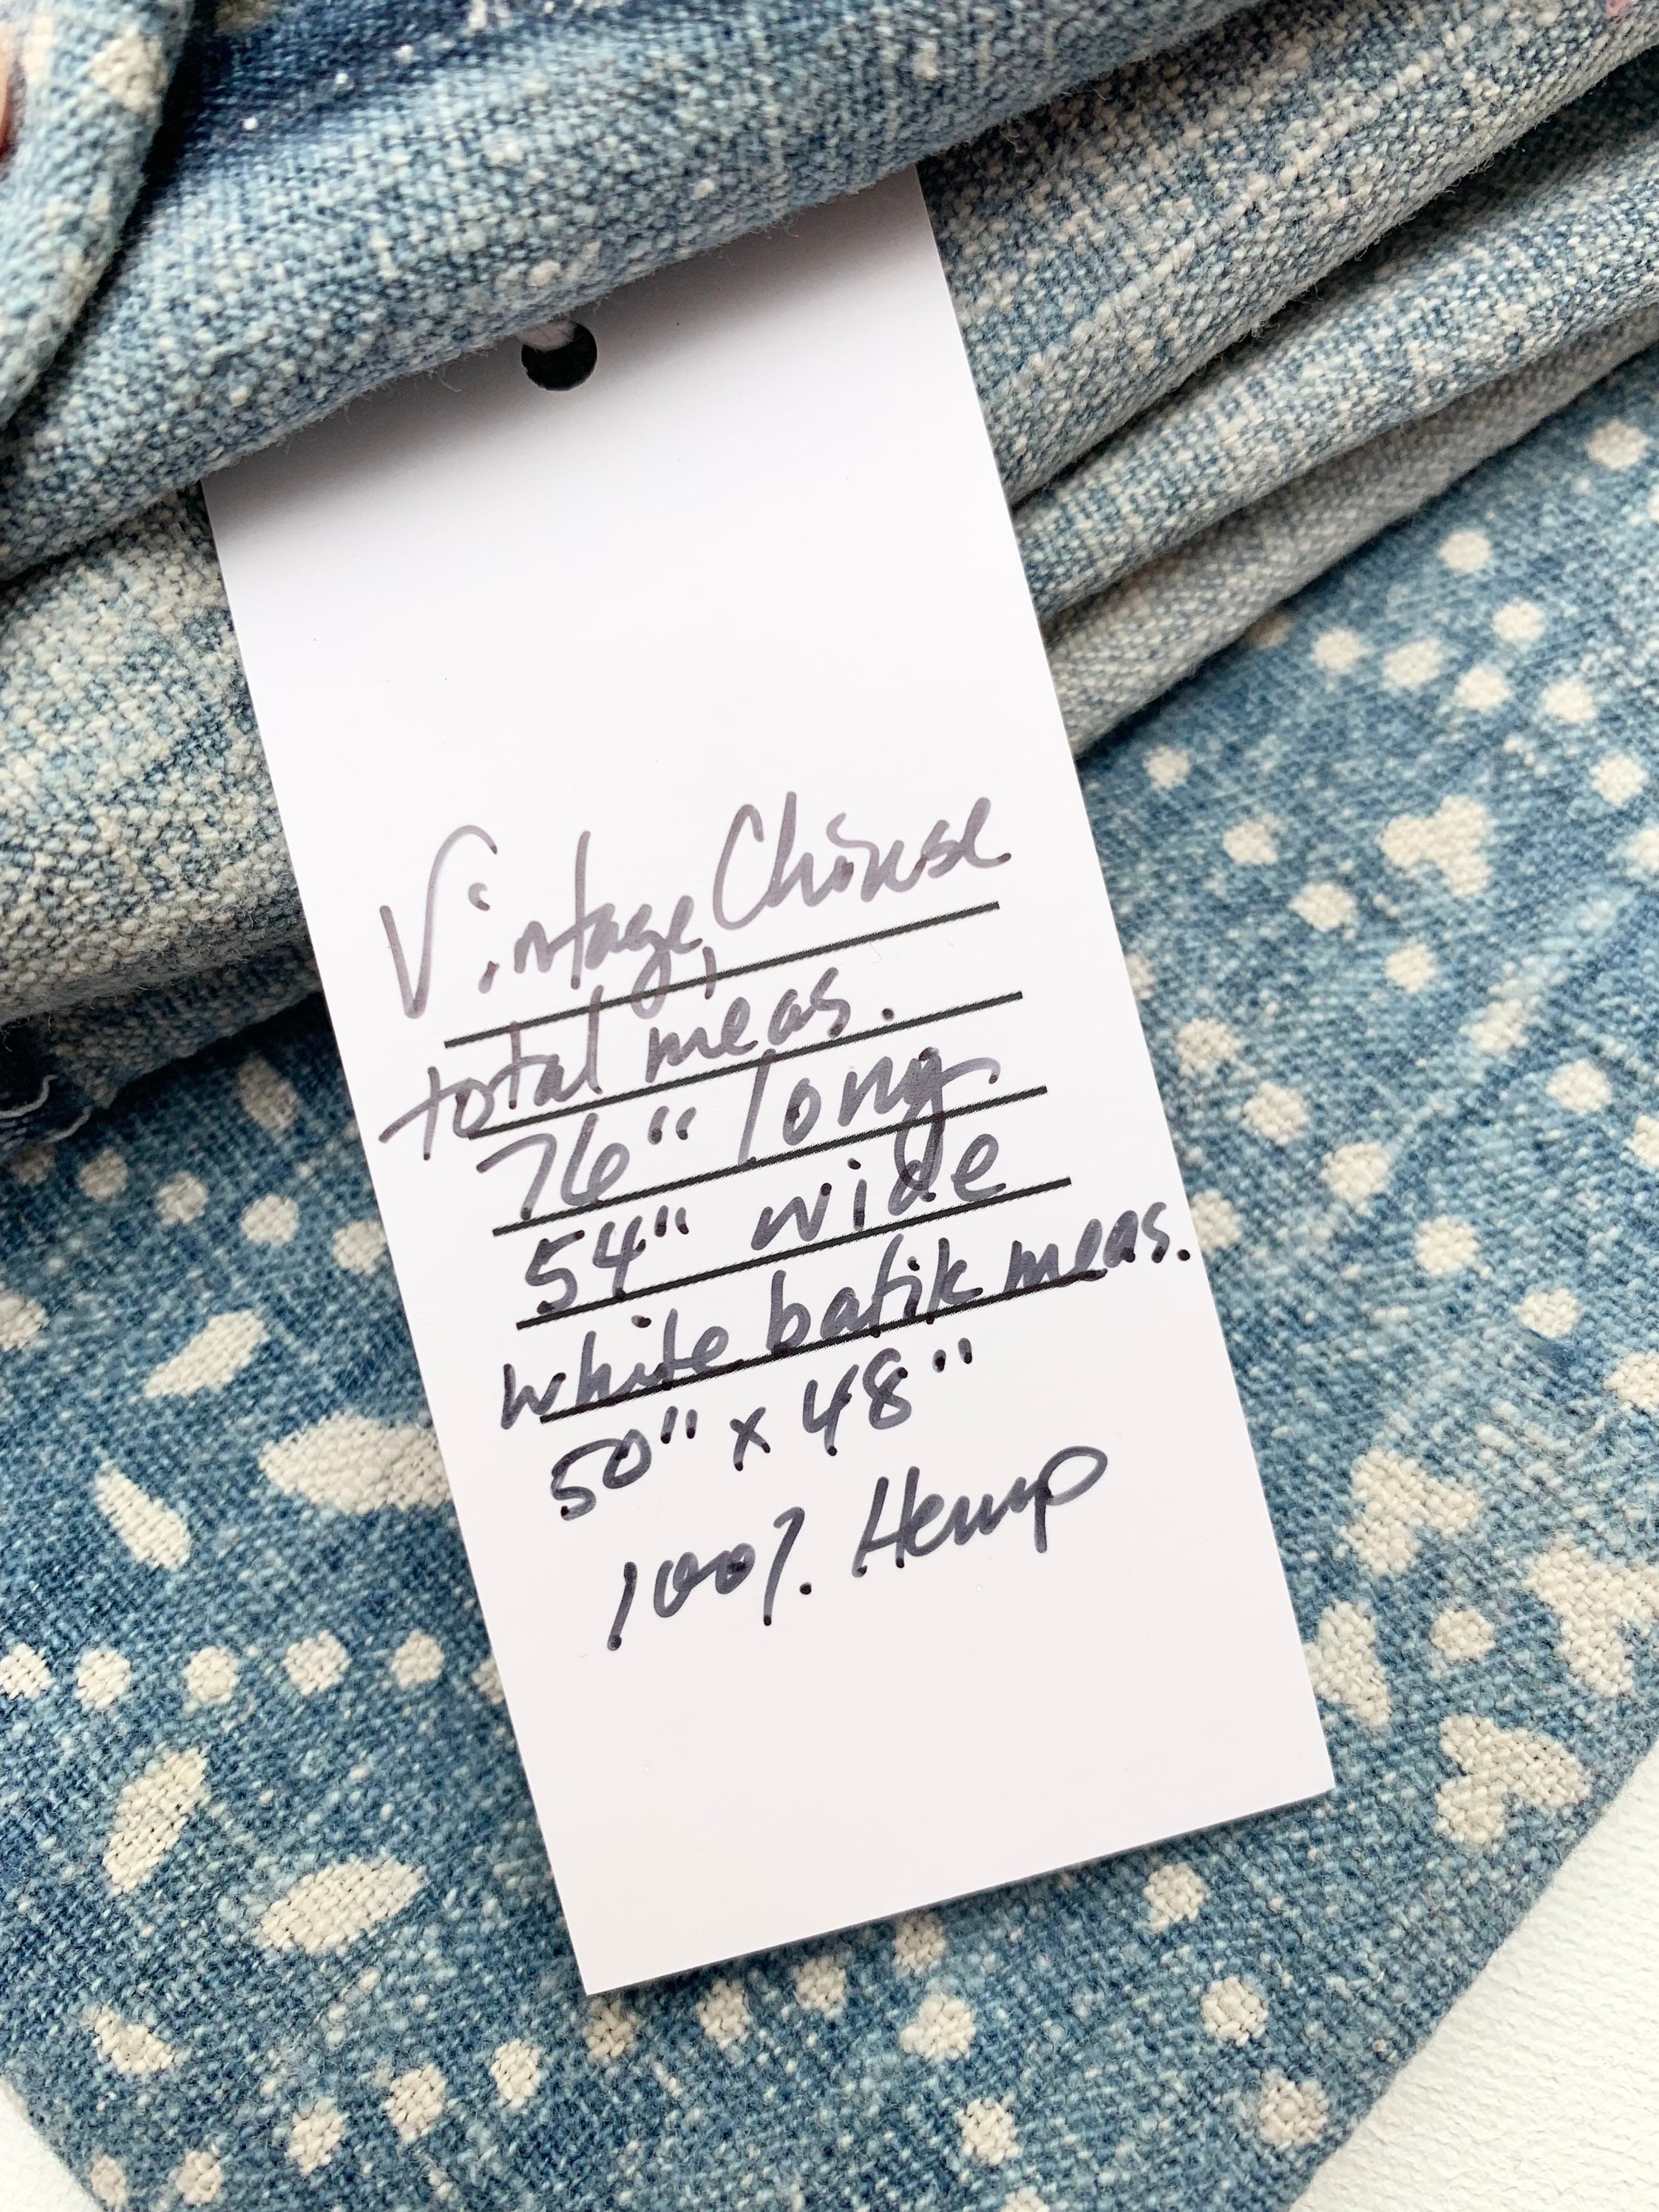 Vintage, Chinese
total meas.
76" long
54" wide
white batik meas.
50" x 48"
100% Hemp